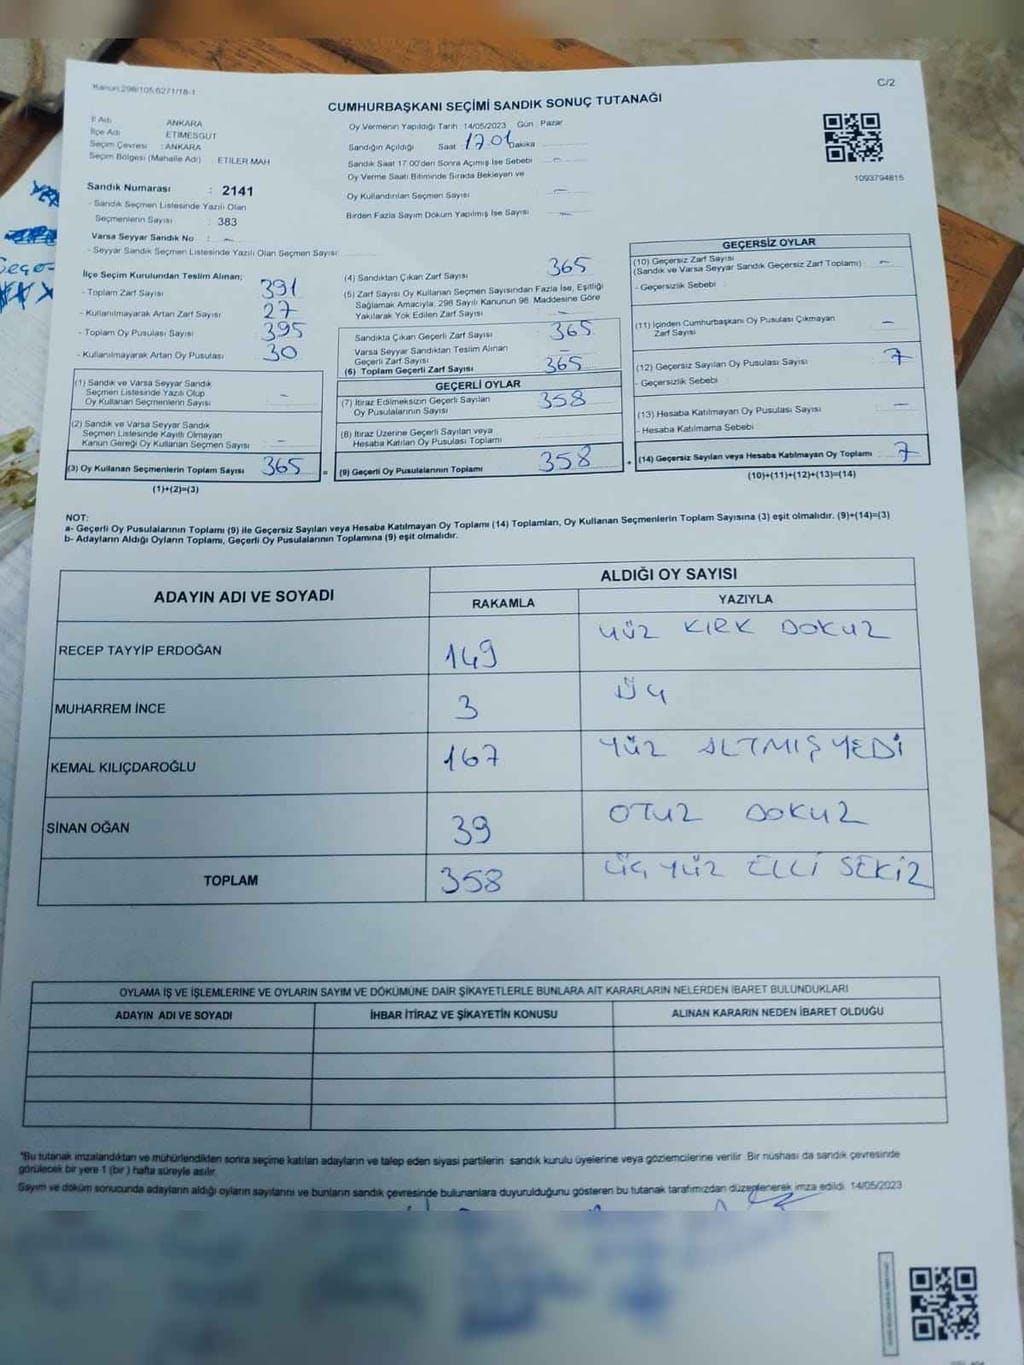 Kanun:298/105,6271/18-1
C/2
CUMHURBAŞKANI SEÇİMİ SANDIK SONUÇ TUTANAĞI
İl Adı ANKARA
İlçe Adı ETİMESGUT
Seçim Çevresi : ANKARA
Seçim Bölgesi (Mahalle Adı) ETİLER MAH
Oy Vermenin Yapıldığı Tarih :14/05/2023 Gün : Pazar
Sandığın Açıldığı Saat 17.01 Dakika
Sandık Saat 17.00'den Sonra Açılmış İse Sebebi –
Oy Verme Saati Bitiminde Sırada Bekleyen ve
Oy Kullandırılan Seçmen Sayısı –
Birden Fazla Sayım Döküm Yapılmış İse Sayısı –
1093794815
Sandık Numarası : 2141
- Sandık Seçmen Listesinde Yazılı Olan
Seçmenlerin Sayısı : 383
Varsa Seyyar Sandık No : –
- Seyyar Sandık Seçmen Listesinde Yazılı Olan Seçmen Sayısı:
İlçe Seçim Kurulundan Teslim Alınan;
- Toplam Zarf Sayısı 391
- Kullanılmayarak Artan Zarf Sayısı 27
- Toplam Oy Pusulası Sayısı 395
- Kullanılmayarak Artan Oy Pusulası 30
(1) Sandık ve Varsa Seyyar Sandık
Seçmen Listesinde Yazılı Olup
Oy Kullanan Seçmenlerin Sayısı –
(2) Sandık ve Varsa Seyyar Sandık
Seçmen Listesinde Kayıtlı Olmayan
Kanun Gereği Oy Kullanan Seçmen Sayısı –
(3) Oy Kullanan Seçmenlerin Toplam Sayısı 365 =
(1)+(2)=(3)
(4) Sandıktan Çıkan Zarf Sayısı 365
(5) Zarf Sayısı Oy Kullanan Seçmen Sayısından Fazla İse, Eşitliği
Sağlamak Amacıyla; 298 Sayılı Kanunun 98. Maddesine Göre
Yakılarak Yok Edilen Zarf Sayısı –
Sandıkta Çıkan Geçerli Zarf Sayısı 365
Varsa Seyyar Sandıktan Teslim Alınan
Geçerli Zarf Sayısı –
(6) Toplam Geçerli Zarf Sayısı 365
GEÇERLİ OYLAR
(7) İtiraz Edilmeksizin Geçerli Sayılan
Oy Pusulalarının Sayısı 358
(8) İtiraz Üzerine Geçerli Sayılan veya
Hesaba Katılan Oy Pusulası Toplamı
(9) Geçerli Oy Pusulalarının Toplamı 358 +
GEÇERSİZ OYLAR
(10) Geçersiz Zarf Sayısı
(Sandık ve Varsa Seyyar Sandık Geçersiz Zarf Toplamı) –
- Geçersizlik Sebebi :
(11) İçinden Cumhurbaşkanı Oy Pusulası Çıkmayan
Zarf Sayısı –
(12) Geçersiz Sayılan Oy Pusulası Sayısı 7
- Geçersizlik Sebebi
(13) Hesaba Katılmayan Oy Pusulası Sayısı –
- Hesaba Katılmama Sebebi
(14) Geçersiz Sayılan veya Hesaba Katılmayan Oy Toplamı 7
(10)+(11)+(12)+(13)=(14)
NOT:
a- Geçerli Oy Pusulalarının Toplamı (9) ile Geçersiz Sayılan veya Hesaba Katılmayan Oy Toplamı (14) Toplamları, Oy Kullanan Seçmenlerin Toplam Sayısına (3) eşit olmalıdır. (9)+(14)=(3)
b- Adayların Aldığı Oyların Toplamı, Geçerli Oy Pusulalarının Toplamına (9) eşit olmalıdır.
ADAYIN ADI VE SOYADI
ALDIĞI OY SAYISI
RAKAMLA YAZIYLA
RECEP TAYYİP ERDOĞAN 149 YÜZ KIRK DOKUZ
MUHARREM İNCE 3 ÜÇ
KEMAL KILIÇDAROĞLU 167 YÜZ ALTMIŞ YEDİ
SİNAN OĞAN 39 OTUZ DOKUZ
TOPLAM 358 ÜÇ YÜZ ELLİ SEKİZ
OYLAMA İŞ VE İŞLEMLERİNE VE OYLARIN SAYIM VE DÖKÜMÜNE DAİR ŞİKAYETLERLE BUNLARA AİT KARARLARIN NELERDEN İBARET BULUNDUKLARI
ADAYIN ADI VE SOYADI İHBAR İTİRAZ VE ŞİKAYETİN KONUSU ALINAN KARARIN NEDEN İBARET OLDUĞU
"Bu tutanak imzalandıktan ve mühürlendikten sonra seçime katılan adayların ve talep eden siyasi partilerin sandık kurulu üyelerine veya gözlemcilerine verilir. Bir nüshası da sandık çevresinde
görülecek bir yere 1 (bir) hafta süreyle asılır.
Sayım ve döküm sonucunda adayların aldığı oyların sayılarını ve bunların sandık çevresinde bulunanlara duyurulduğunu gösteren bu tutanak tarafımızdan düzenlenerek imza edildi. 14/05/2023